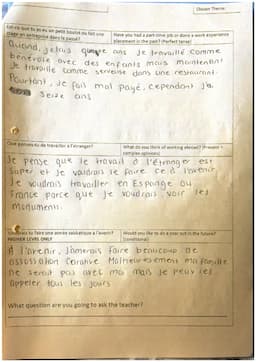 Chosen Theme:
Est-ce que tu as eu un petit boulot ou fait une stage en entreprise dans le passé?
Have you had a part time job or done a work experience placement in the past? (Perfect tense)
Quand, j'etais ans Je travaillé comme
bénévole avec des enfants mais maintenant
Je travaille comme serveuse dans une restaurant.
Pourtant, Je fais mal payé, cependant j'ai
seize ans
Que penses-tu de travailler à l'étranger?
What do you think of working abroad? (Present + complex opinions)
Je pense que le travail à l'étranger est
super et Je voudrais le faire ce à l'avenir.
Je voudrais travailler en Espange ou
France parce que Je voudrais voir les
monuments.
tu faire une année sabbatique à l'avenir?
HIGHER LEVEL ONLY
Would you like to do a year out in the future? (Conditional)
A l'avenir, J'aimerais faire beaucoup de
assosiation Carative. Malheureusement ma famille
ne serait pas avec moi mais Je peux les
appeler tous les jours
What question are you going to ask the teacher?